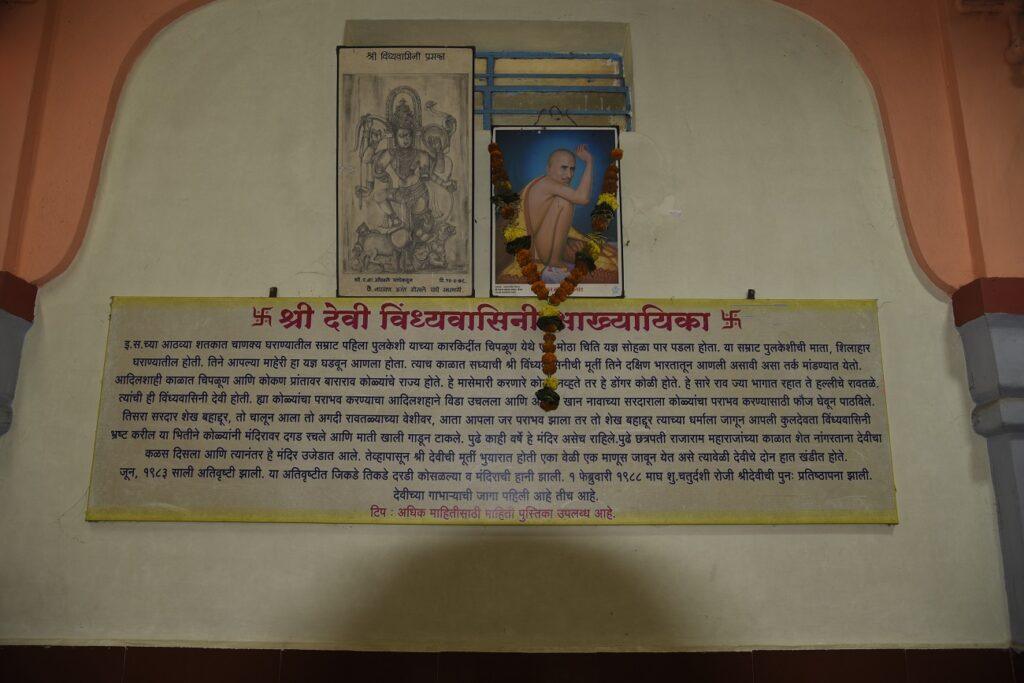 श्री विंध्यवासिनी प्रसन्न
卐 श्री देवी विंध्यवासिनी आख्यायिका 卐
इ.स.च्या आठव्या शतकात चाणक्य घराण्यातील सम्राट पहिला पुलकेशी याच्या कारकिर्दीत चिपळूण येथे मोठा चिति यज्ञ सोहळा पार पडला होता. या सम्राट पुलकेशीची माता, शिलाहार
घराण्यातील होती. तिने आपल्या माहेरी हा यज्ञ घडवून आणला होता. त्याच काळात सध्याची श्री विंध्यवासिनीची मूर्ती तिने दक्षिण भारतातून आणली असावी असा तर्क मांडण्यात येतो.
आदिलशाही काळात चिपळूण आणि कोकण प्रांतावर बाराराव कोळ्यांचे राज्य होते. हे मासेमारी करणारे नव्हते तर हे डोंगर कोळी होते. हे सारे राव ज्या भागात रहात ते हल्लीचे रावतळे.
त्यांची ही विंध्यवासिनी देवी होती. ह्या कोळ्यांचा पराभव करण्याचा आदिलशहाने विडा उचलला आणि खान नावाच्या सरदाराला कोळ्यांचा पराभव करण्यासाठी फौज घेवून पाठविले.
तिसरा सरदार शेख बहाद्दूर, तो चालून आला तो अगदी रावतळ्याच्या वेशीवर, आता आपला जर पराभव झाला तर तो शेख बहाद्दूर त्याच्या धर्माला जागून आपली कुलदेवता विंध्यवासिनी
भ्रष्ट करील या भितीने कोळ्यांनी मंदिरावर दगड रचले आणि माती खाली गाडून टाकले. पुढे काही वर्षे हे मंदिर असेच राहिले.पुढे छत्रपती राजाराम महाराजांच्या काळात शेत नांगरताना देवीचा
कळस दिसला आणि त्यानंतर हे मंदिर उजेडात आले. तेव्हापासून श्री देवीची मूर्ती भुयारात होती एका वेळी एक माणूस जावून येत असे त्यावेळी देवीचे दोन हात खंडीत होते.
जून, १९८३ साली अतिवृष्टी झाली. या अतिवृष्टीत जिकडे तिकडे दरडी कोसळल्या व मंदिराची हानी झाली. १ फेब्रुवारी १९८८ माघ शु.चतुर्दशी रोजी श्रीदेवीची पुनः प्रतिष्ठापना झाली.
देवीच्या गाभाऱ्याची जागा पहिली आहे तीच आहे.
टिप : अधिक माहितीसाठी माहिती पुस्तिका उपलब्ध आहे.